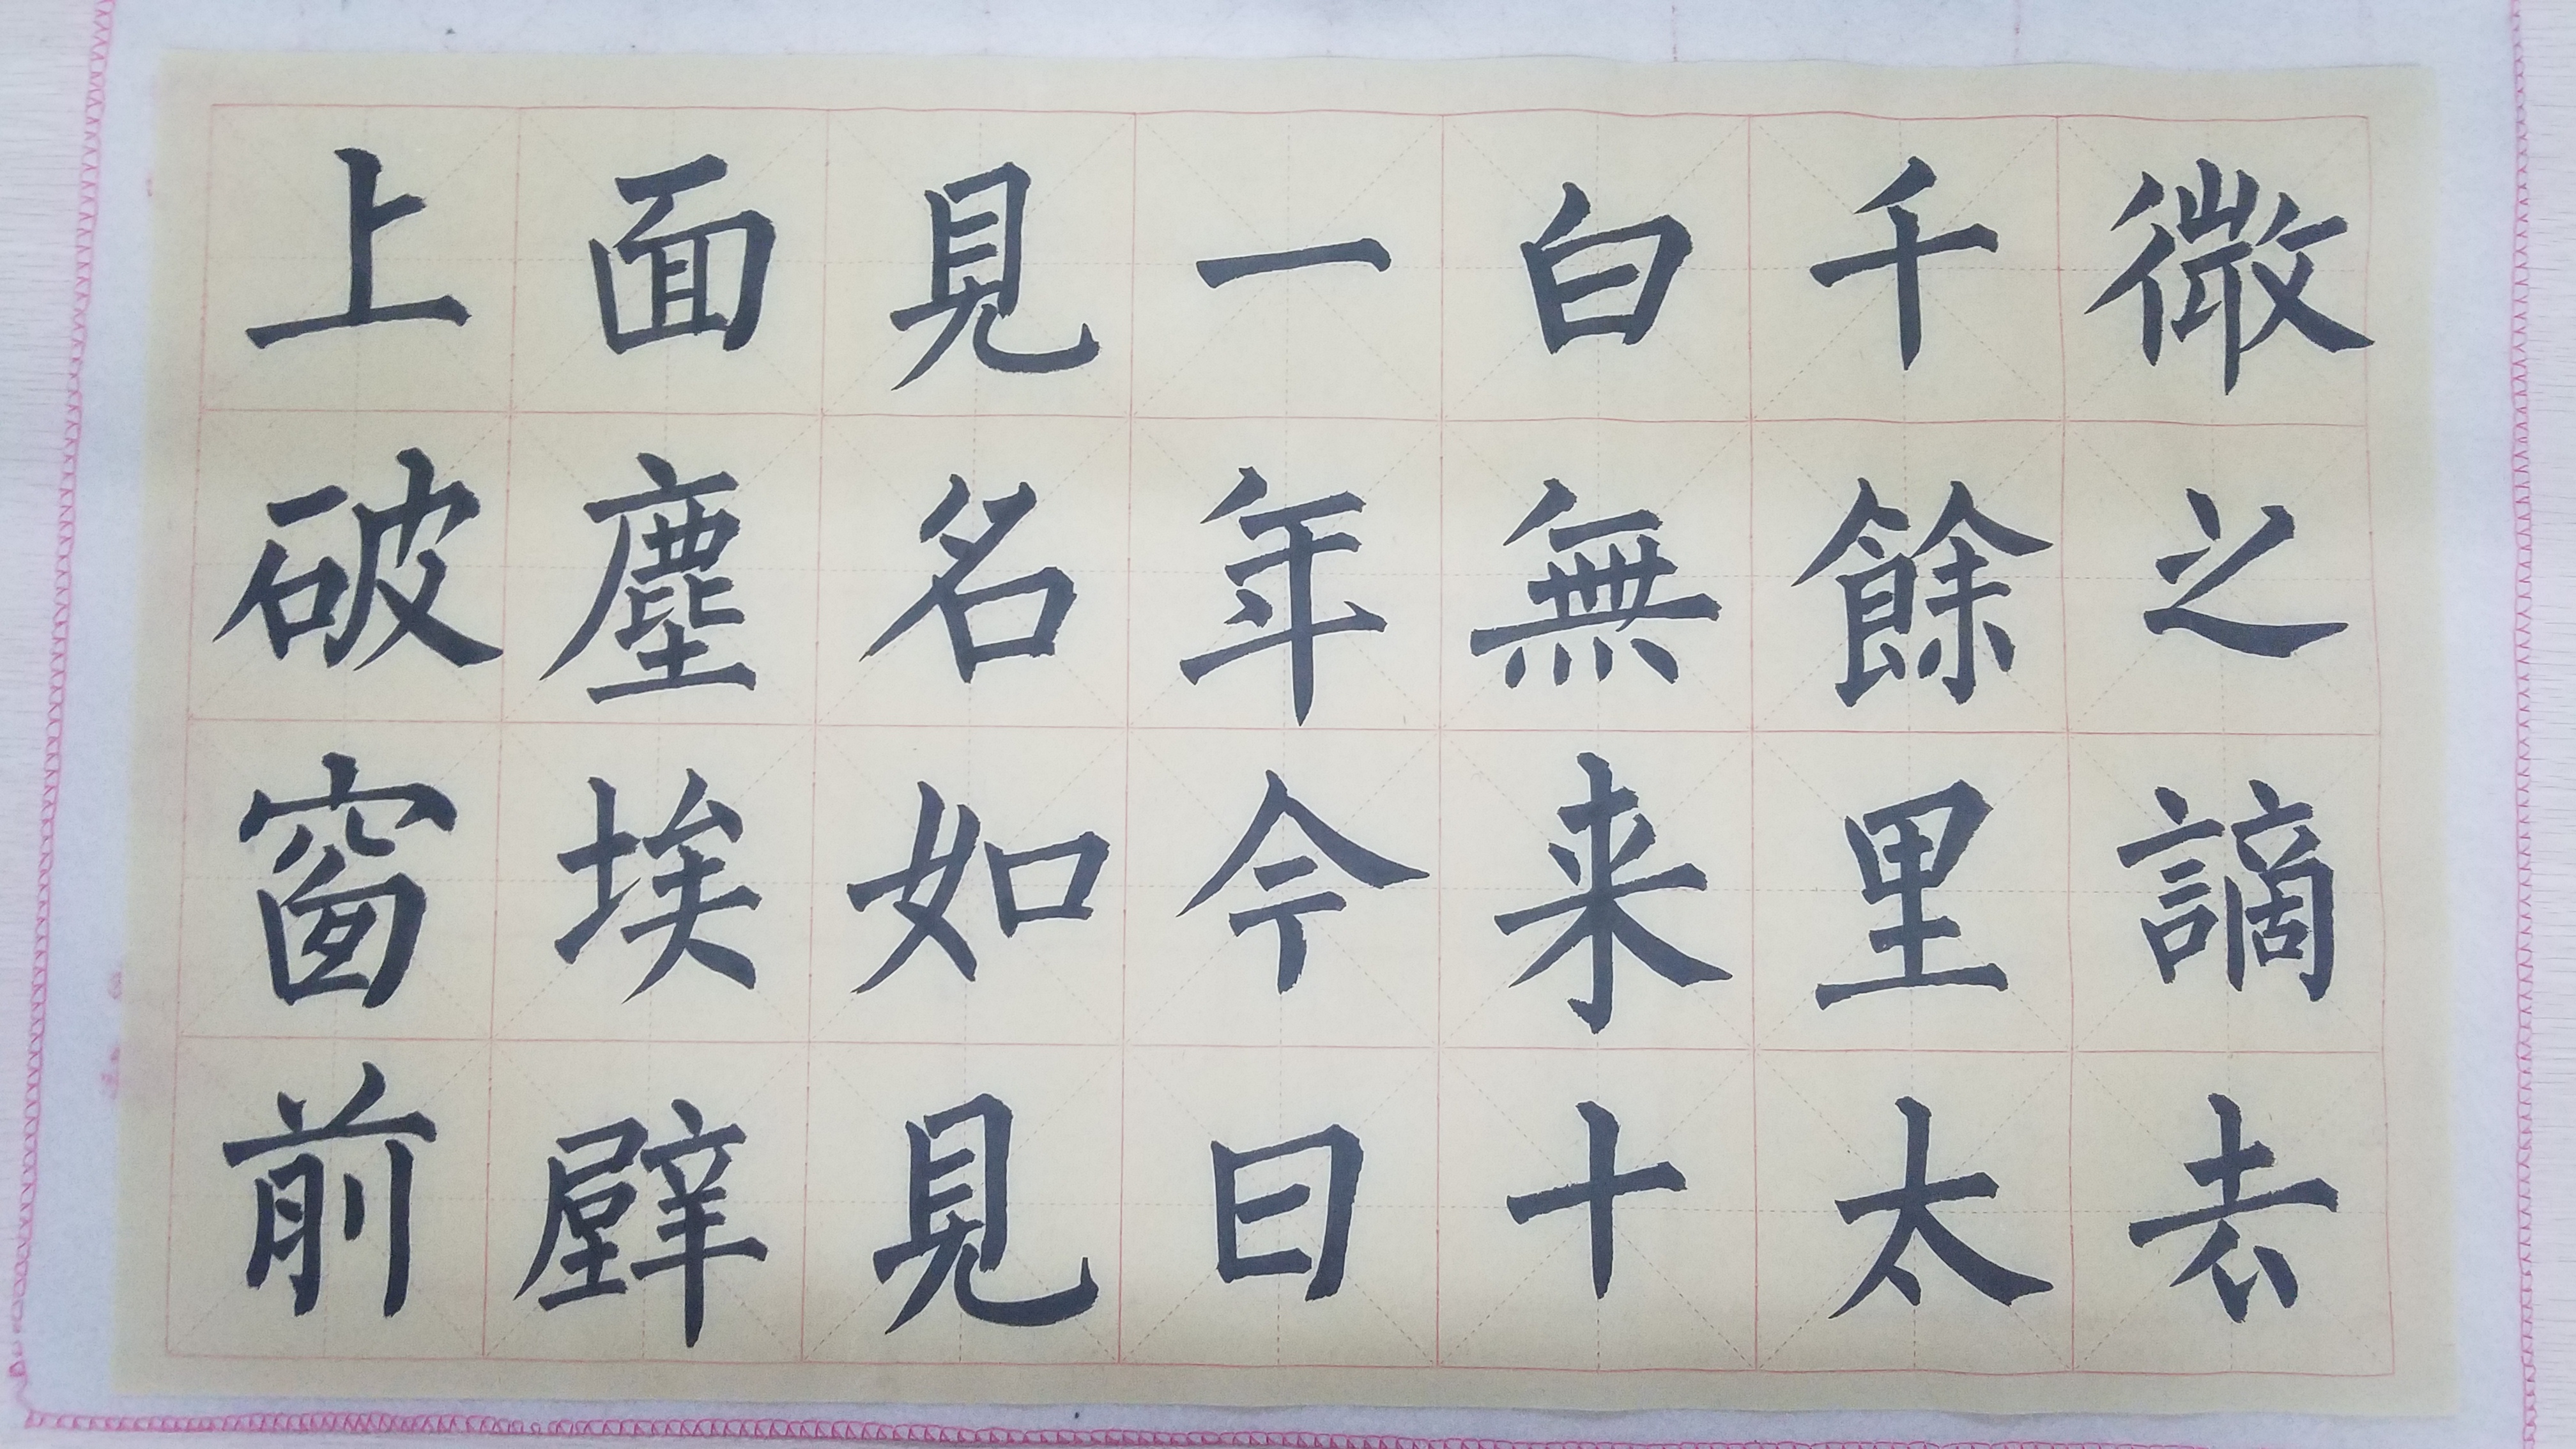 微之謫去
千餘里太
白無来十
一年今日
見名如見
面塵埃壁
上破窗前